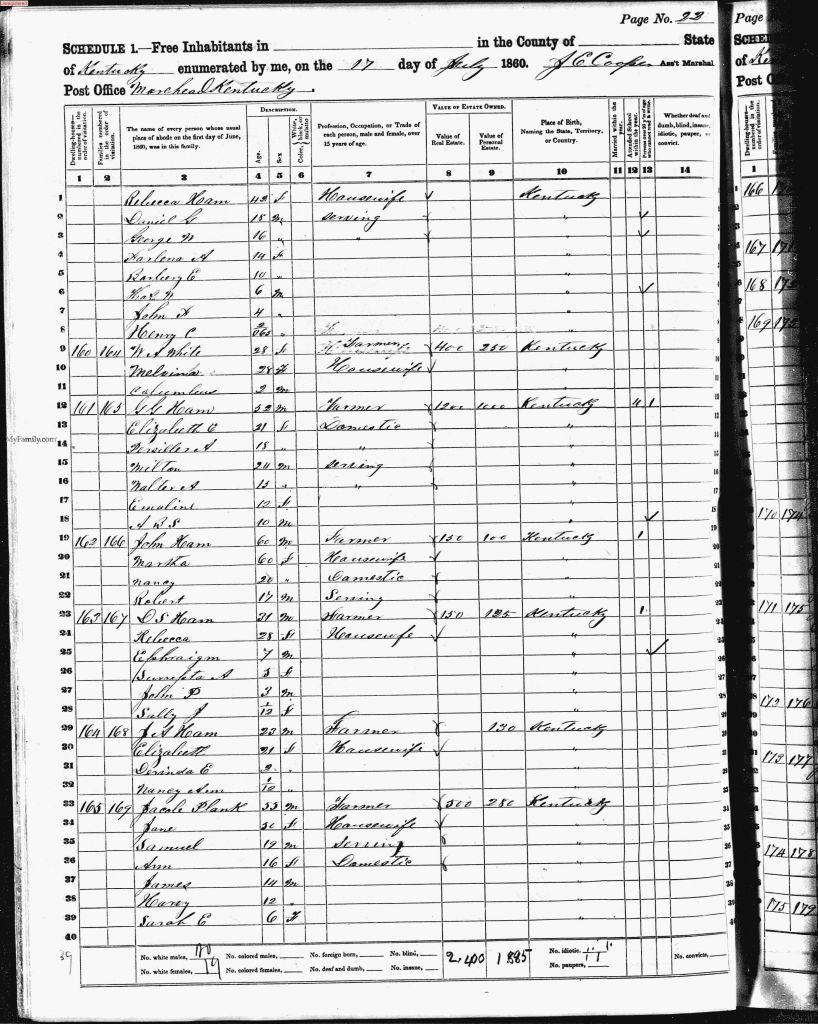 Page No. 22
SCHEDULE 1.—Free Inhabitants in in the County of State
of Kentucky enumerated by me, on the 17 day of July 1860. J E Cooper Ass't Marshal
Post Office Morehead Kentucky.
Dwelling-houses—numbered in the order of visitation. Families numbered in the order of visitation. The name of every person whose usual place of abode on the first day of June, 1860, was in this family. DESCRIPTION. Age. Sex. Color, White, black, or mulatto. Profession, Occupation, or Trade of each person, male and female, over 15 years of age. VALUE OF ESTATE OWNED. Value of Real Estate. Value of Personal Estate. Place of Birth, Naming the State, Territory, or Country. Married within the year. Attended School within the year. Whether deaf and dumb, blind, insane, idiotic, pauper, or convict.
1 2 3 4 5 6 7 8 9 10 11 12 13 14
1 Rebecca Ham 42 f Housewife Kentucky
2 Daniel G 18 m serving "
3 George W 16 " " "
4 A 14 f "
5 E 10 " "
6 W 6 m "
7 John 4 " "
8 Henry C "
9 160 164 W A White 28 Farmer 400 250 Kentucky
10 Melvina 28 f Housewife "
11 Columbus 2 m "
12 161 165 G G Ham 52 m Farmer 1200 1000 Kentucky 1
13 Elizabeth 21 f Domestic "
14 A 18 " " "
15 Milton 24 m serving "
16 Walter A 15 " " "
17 Emaline 12 f "
18 A B S 10 m "
19 162 166 John Ham 60 m Farmer 150 100 Kentucky 1
20 Martha 60 f Housewife "
21 Nancy 20 " Domestic "
22 Robert 17 m Serving "
23 163 167 D S Ham 31 m Farmer 150 125 Kentucky 1
24 Rebecca 28 f Housewife "
25 Ephraigm 7 m "
26 A 5 f "
27 John P 3 m "
28 Sally J 1/12 f "
29 164 168 J A Ham 23 m Farmer 130 Kentucky
30 Elizabeth 21 f Housewife "
31 Dorinda E 2 " "
32 Nancy Ann 1/12 " "
33 165 169 Jacob Plank 55 m Farmer 500 280 Kentucky
34 Jane 50 f Housewife "
35 Samuel 19 m Serving "
36 Ann 16 f Domestic "
37 James 14 m "
38 Harvy 12 " "
39 Sarah E 6 F "
40
39 No. white males, 20 No. colored males, No. foreign born, No. blind, 2,400 1885 No. idiotic, No. convicts,
No. white females, 19 No. colored females, No. deaf and dumb, No. insane, No. paupers,
MyFamily.com
Page
SCHED
of
Post O
1
166
167 171
168
169
170 174
171 175
172 176
173 177
174 178
175 179